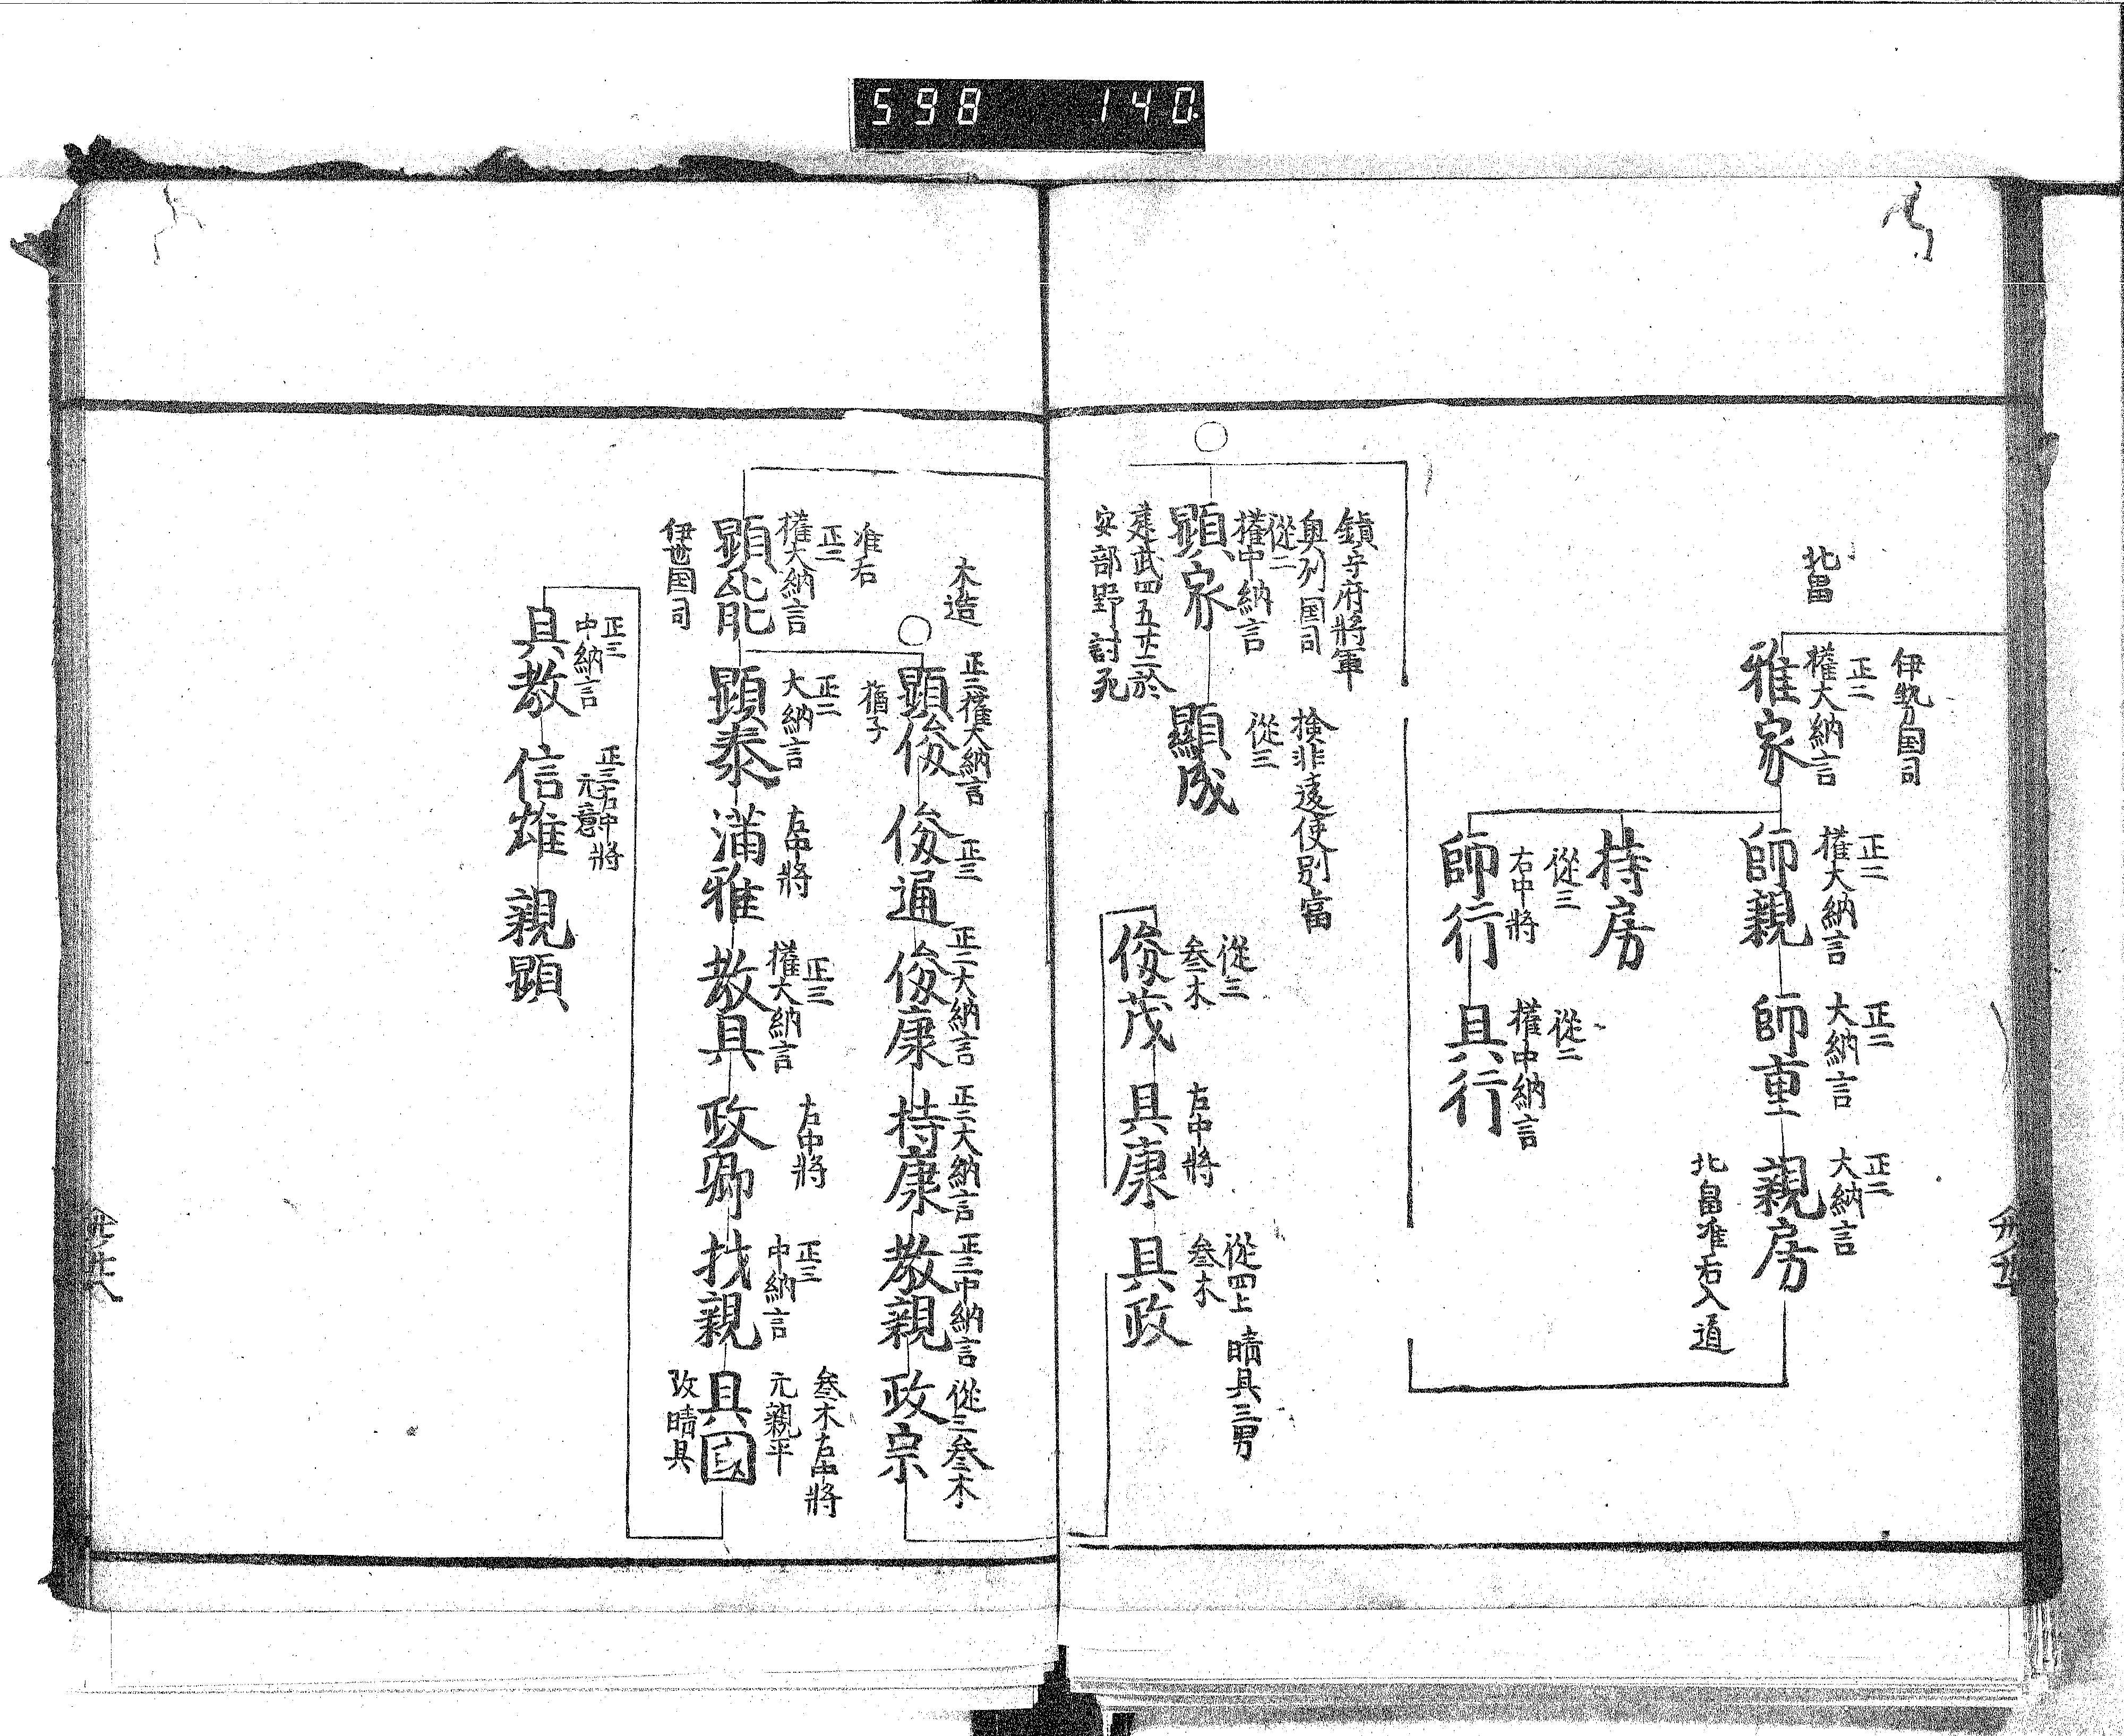 598 140
北畠
伊勢国司
正二
権大納言
雅家
正二
権大納言
師親
正二
大納言
師重
正二
大納言
親房
北畠准后入道
持房
從三
右中將
師行
從二
権中納言
具行
鎮守府將軍
奥州国司
從二
権中納言
顕家
建武四五廿二於
安部野討死
検非違使別當
從三
顕成
從三
叅木
俊茂
左中將
具康
從四上 晴具三男
叅木
具政
木造
正二権大納言
顕俊
猶子
正三
俊通
正二大納言
俊康
正二大納言
持康
正三中納言
教親
從三叅木
政宗
准后
正二
権大納言
顕能
伊世国司
正二
大納言
顕泰
左中將
満雅
正三
権大納言
教具
左中將
政郷
正三
中納言
材親
叅木左中將
元親平
具國
改晴具
正三
中納言
具教
正三右中將
元意
信雄
親顕